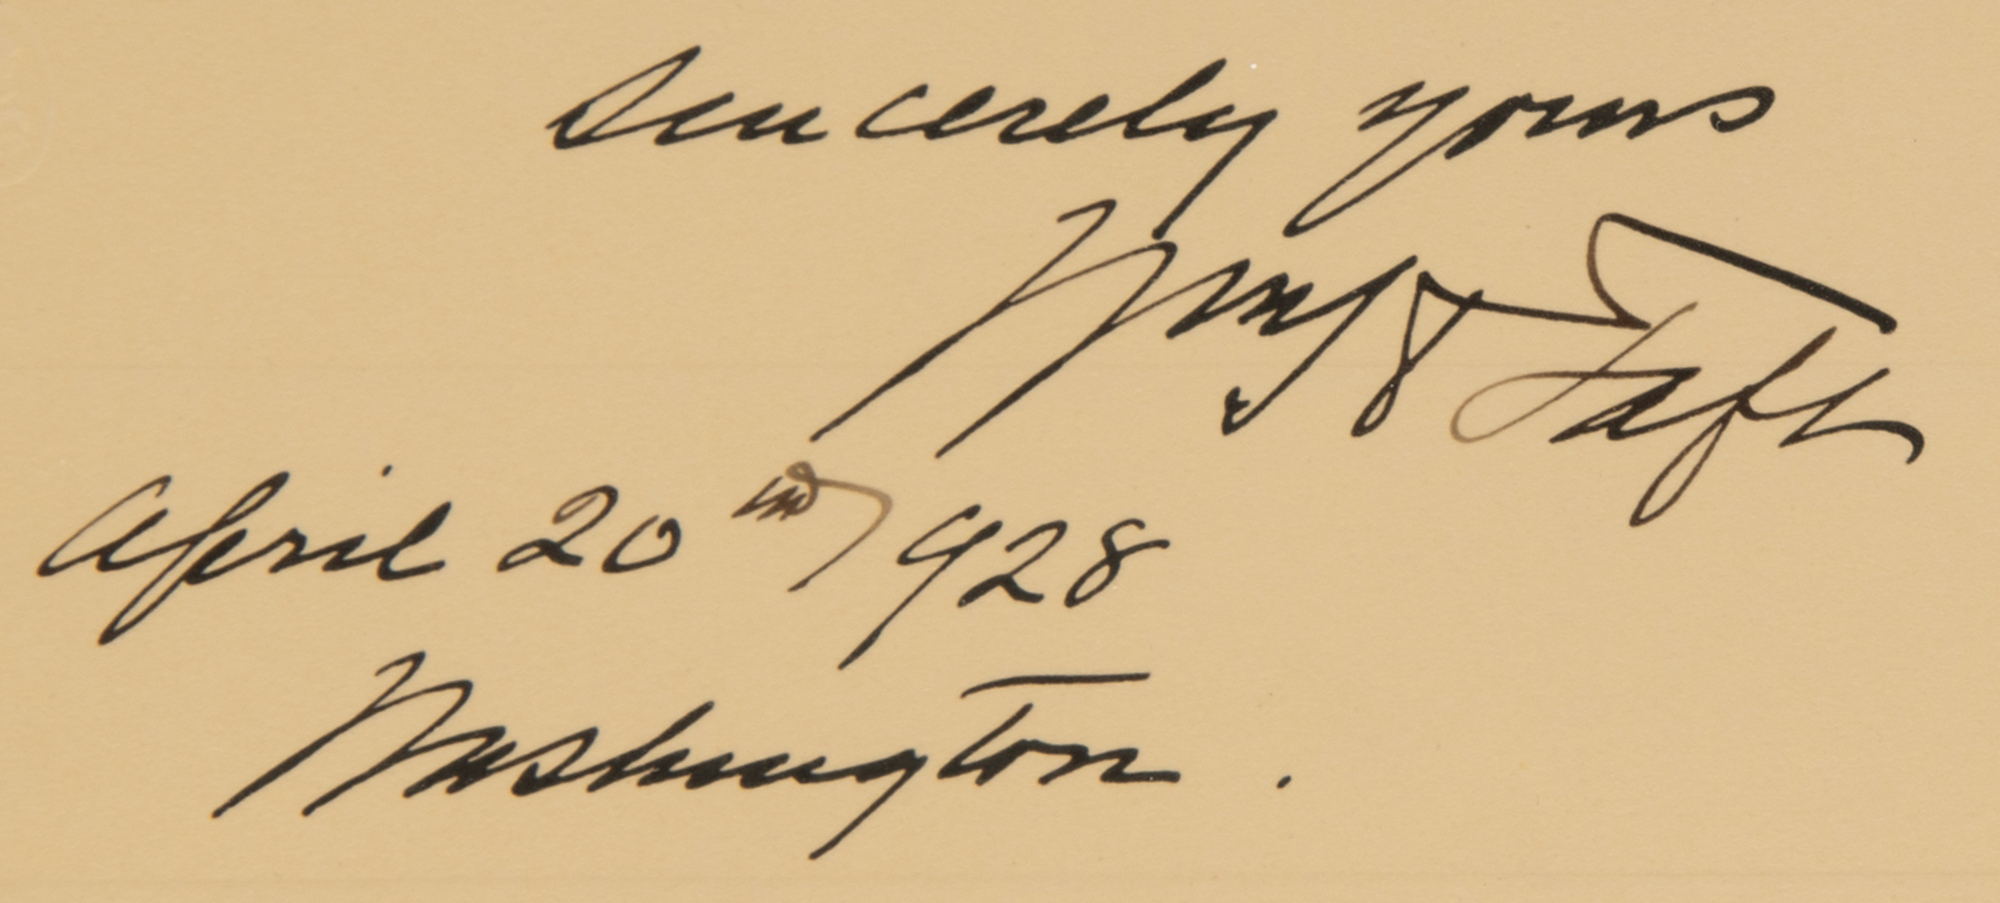 Sincerely yours
Wm H Taft
April 20th 1928
Washington .